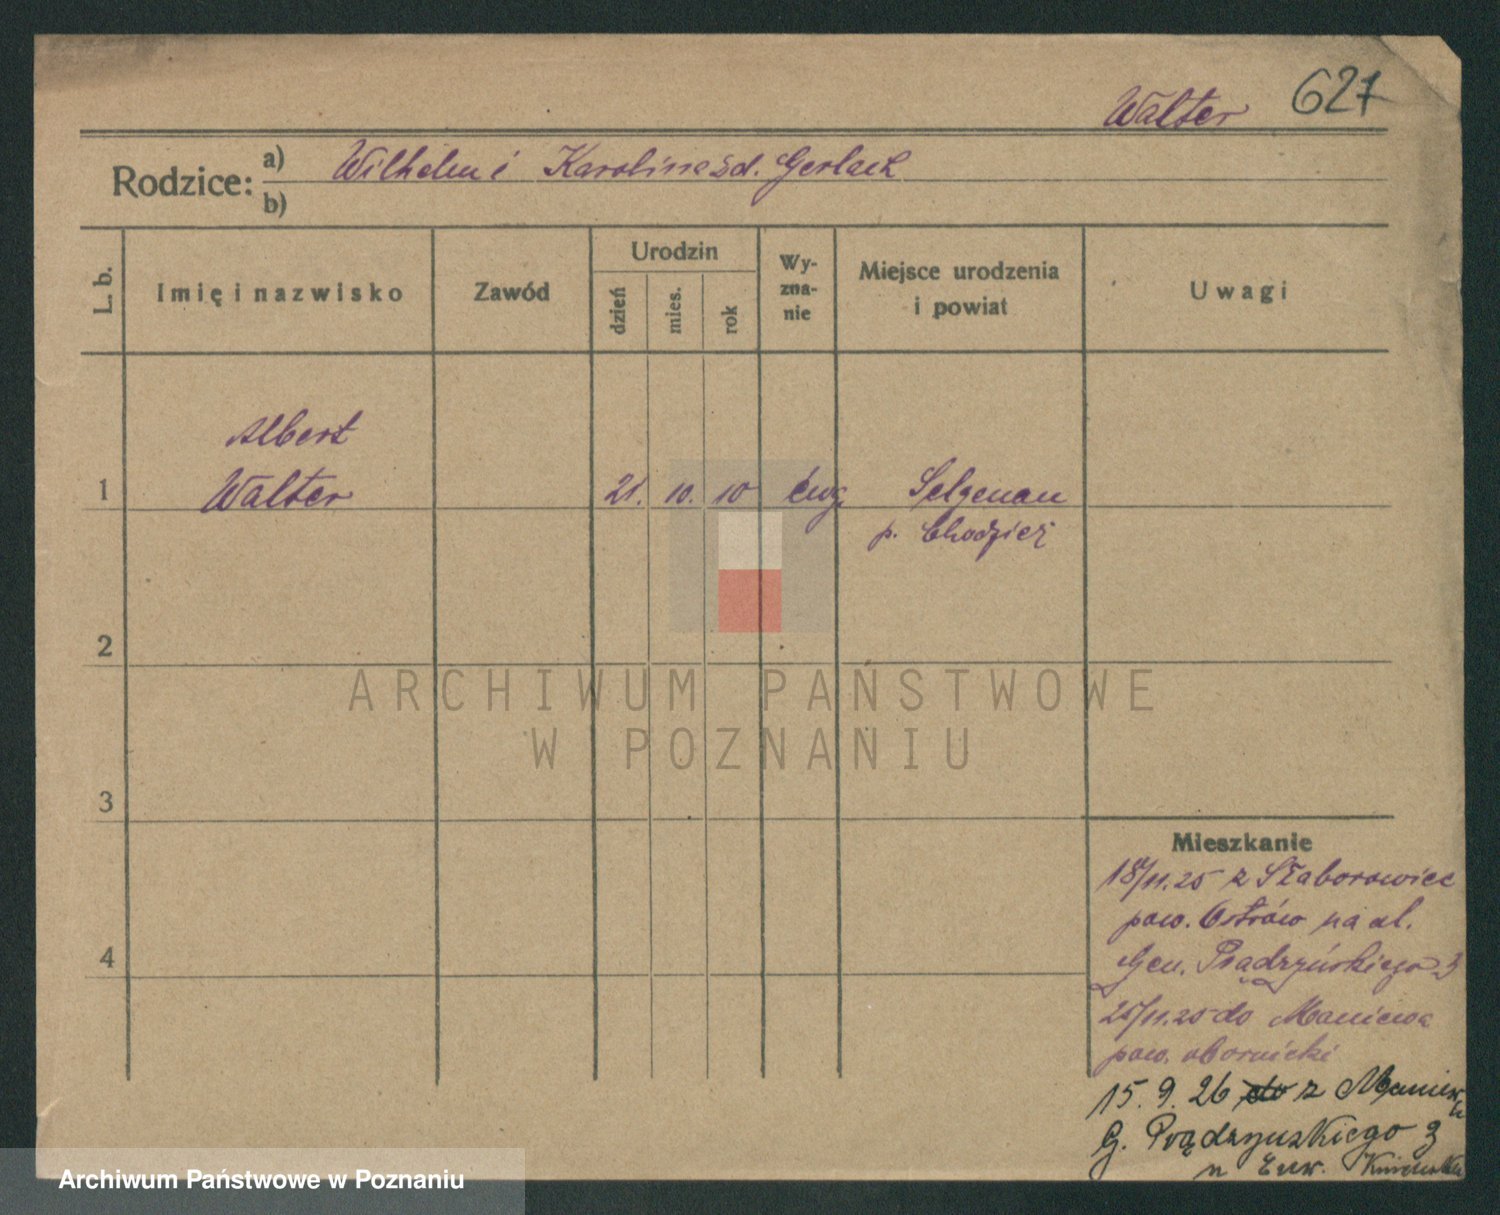 Walter 627
Rodzice: a) Wilhelm i Karolina śd. Gerlach
b)
L. b. Imię i nazwisko Zawód Urodzin dzień mies. rok Wy-zna-nie Miejsce urodzenia i powiat Uwagi
Albert
1 Walter 21. 10. 10 ewg. Selgenau
p. Chodzież
2
ARCHIWUM PAŃSTWOWE
W POZNANIU
3
Mieszkanie
18/11.25 z Słaborowice
pow. Ostrów na ul.
4 Gen. Prądzyńskiego 3
25/11.25 do Maniewa
pow. obornicki
15. 9. 26 do z
G. Prądzyńskiego 3
Archiwum Państwowe w Poznaniu